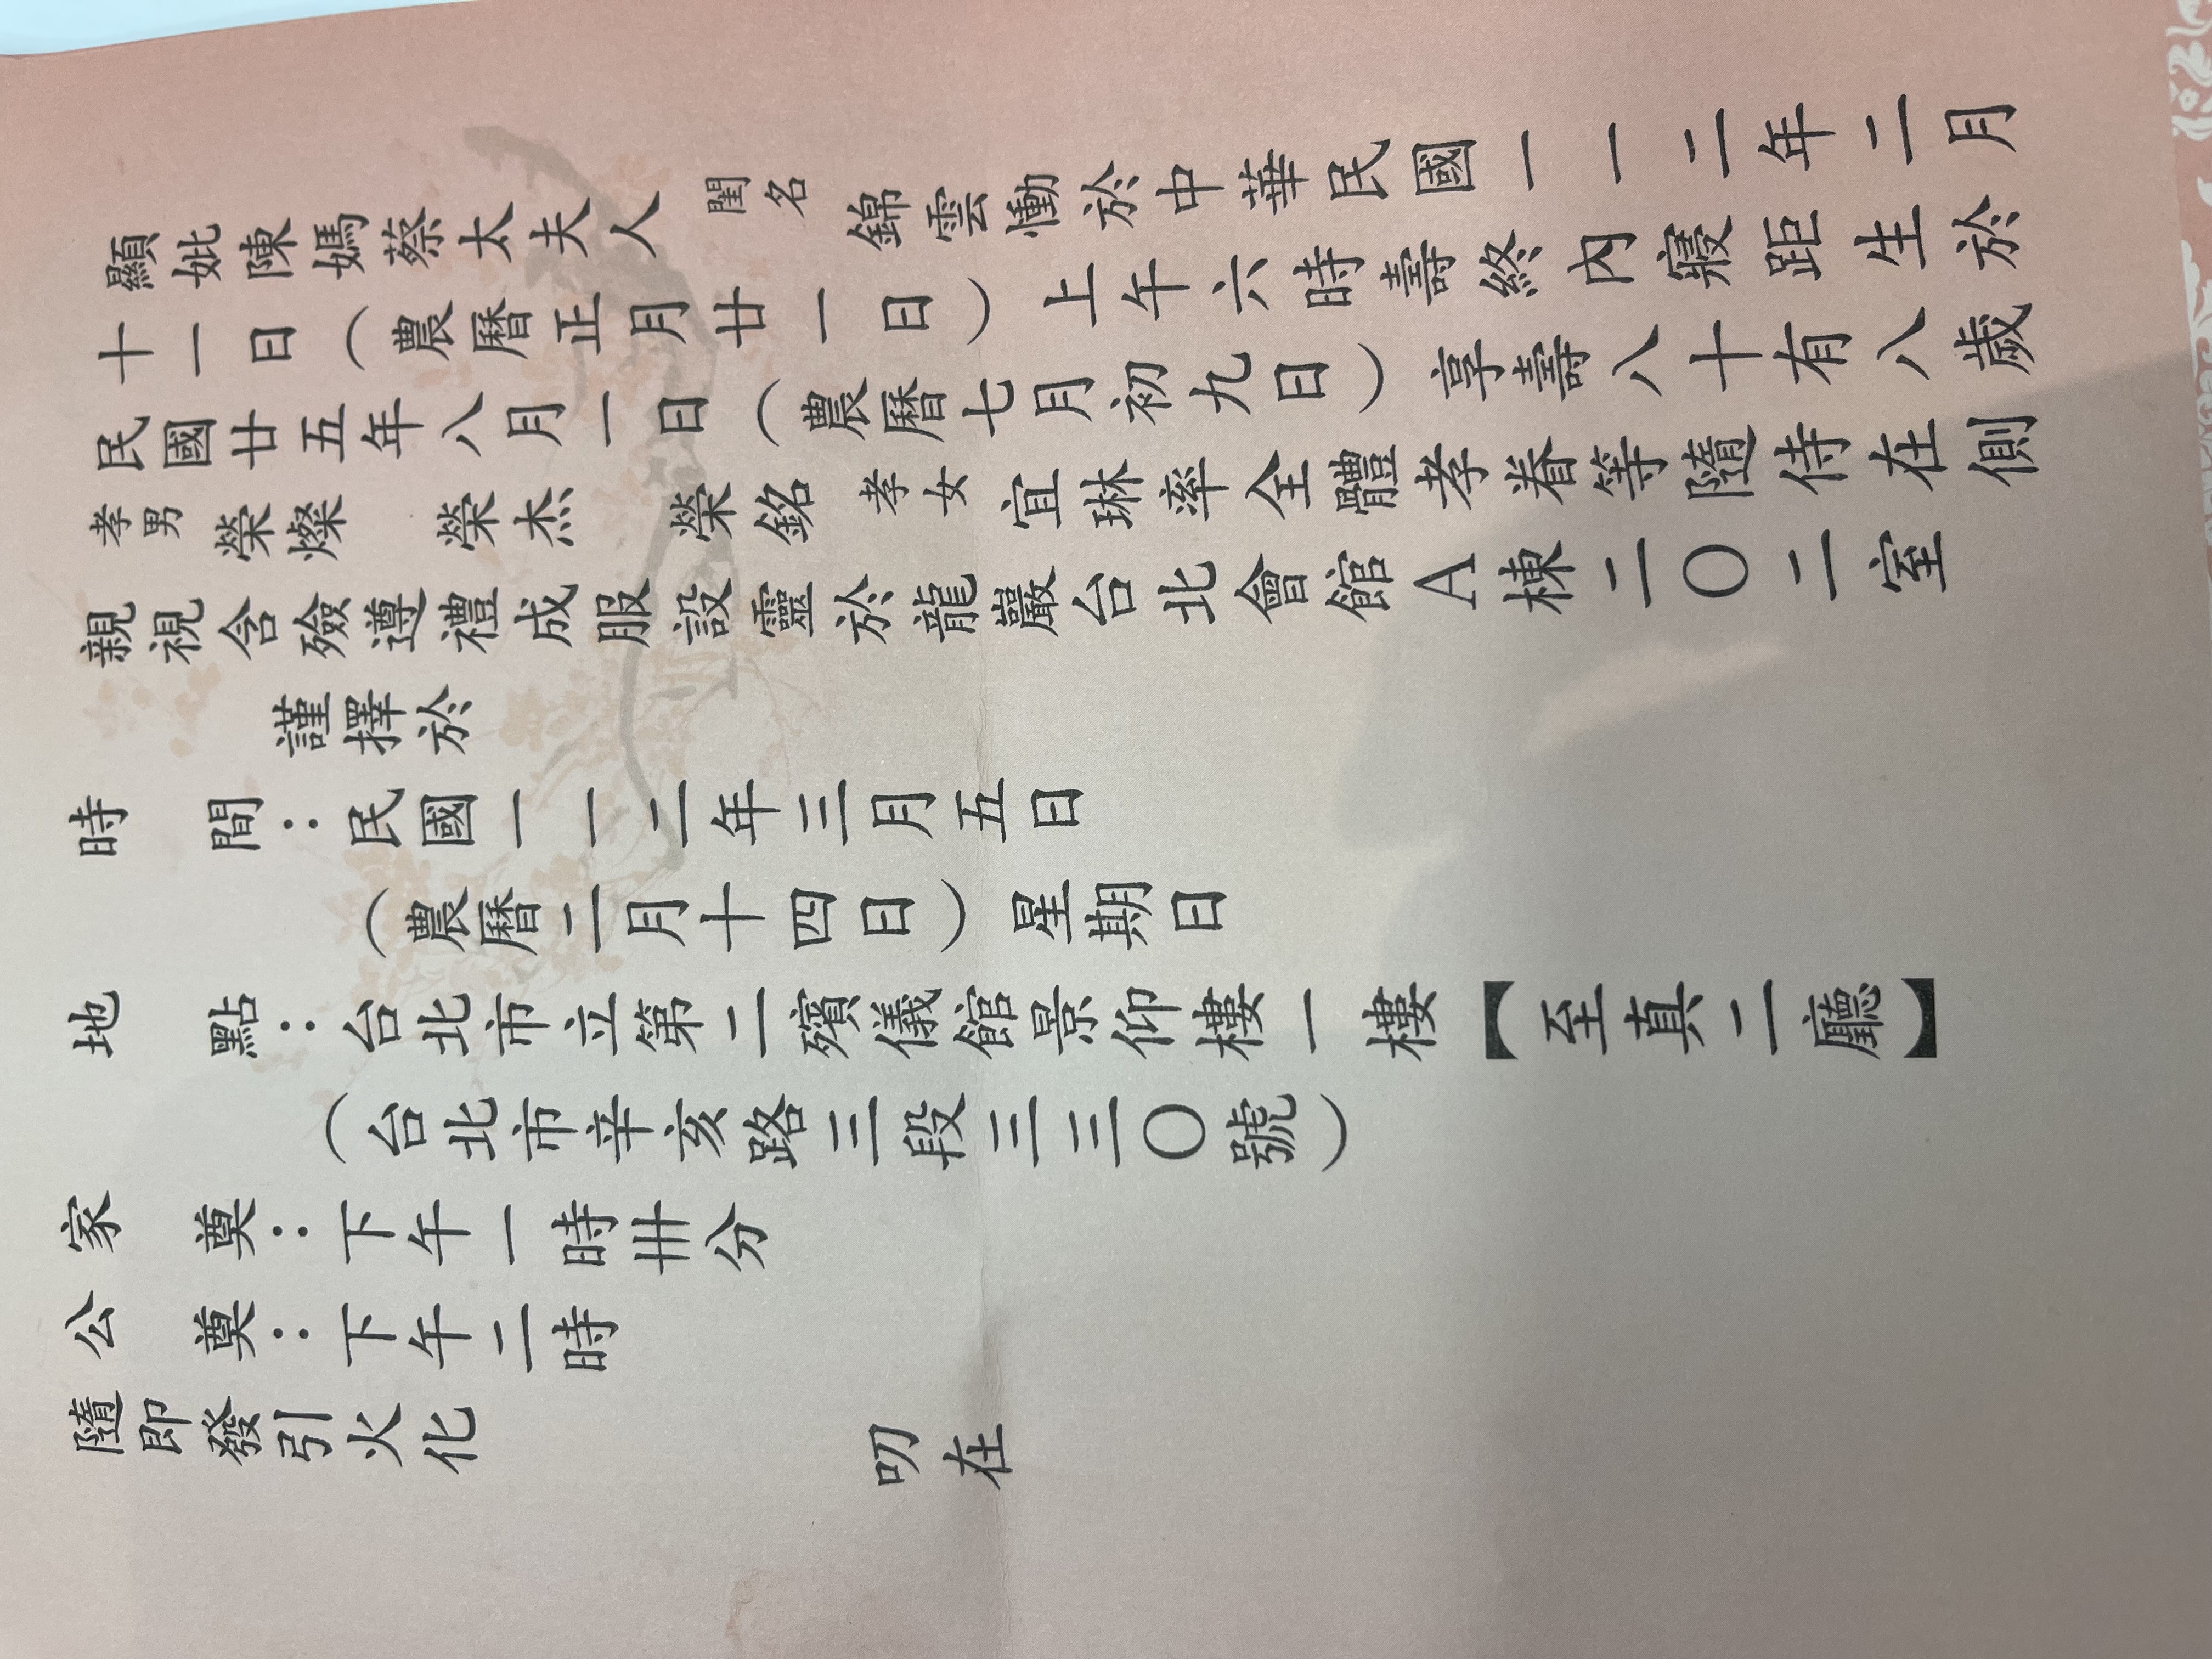 顯妣陳媽蔡太夫人閨名錦雲慟於中華民國一一二年二月
十一日（農曆正月廿一日）上午六時壽終內寢距生於
民國廿五年八月一日（農曆七月初九日）享壽八十有八歲
孝男榮燦 榮杰 榮銘孝女宜琳率全體孝眷等隨侍在側
親視含殮遵禮成服設靈於龍巖台北會館A棟二〇二室
謹擇於
時間：民國一一二年三月五日
（農曆二月十四日）星期日
地點：台北市立第二殯儀館景仰樓一樓【至真二廳】
（台北市辛亥路三段三三〇號）
家奠：下午一時卅分
公奠：下午二時
隨即發引火化
叨在